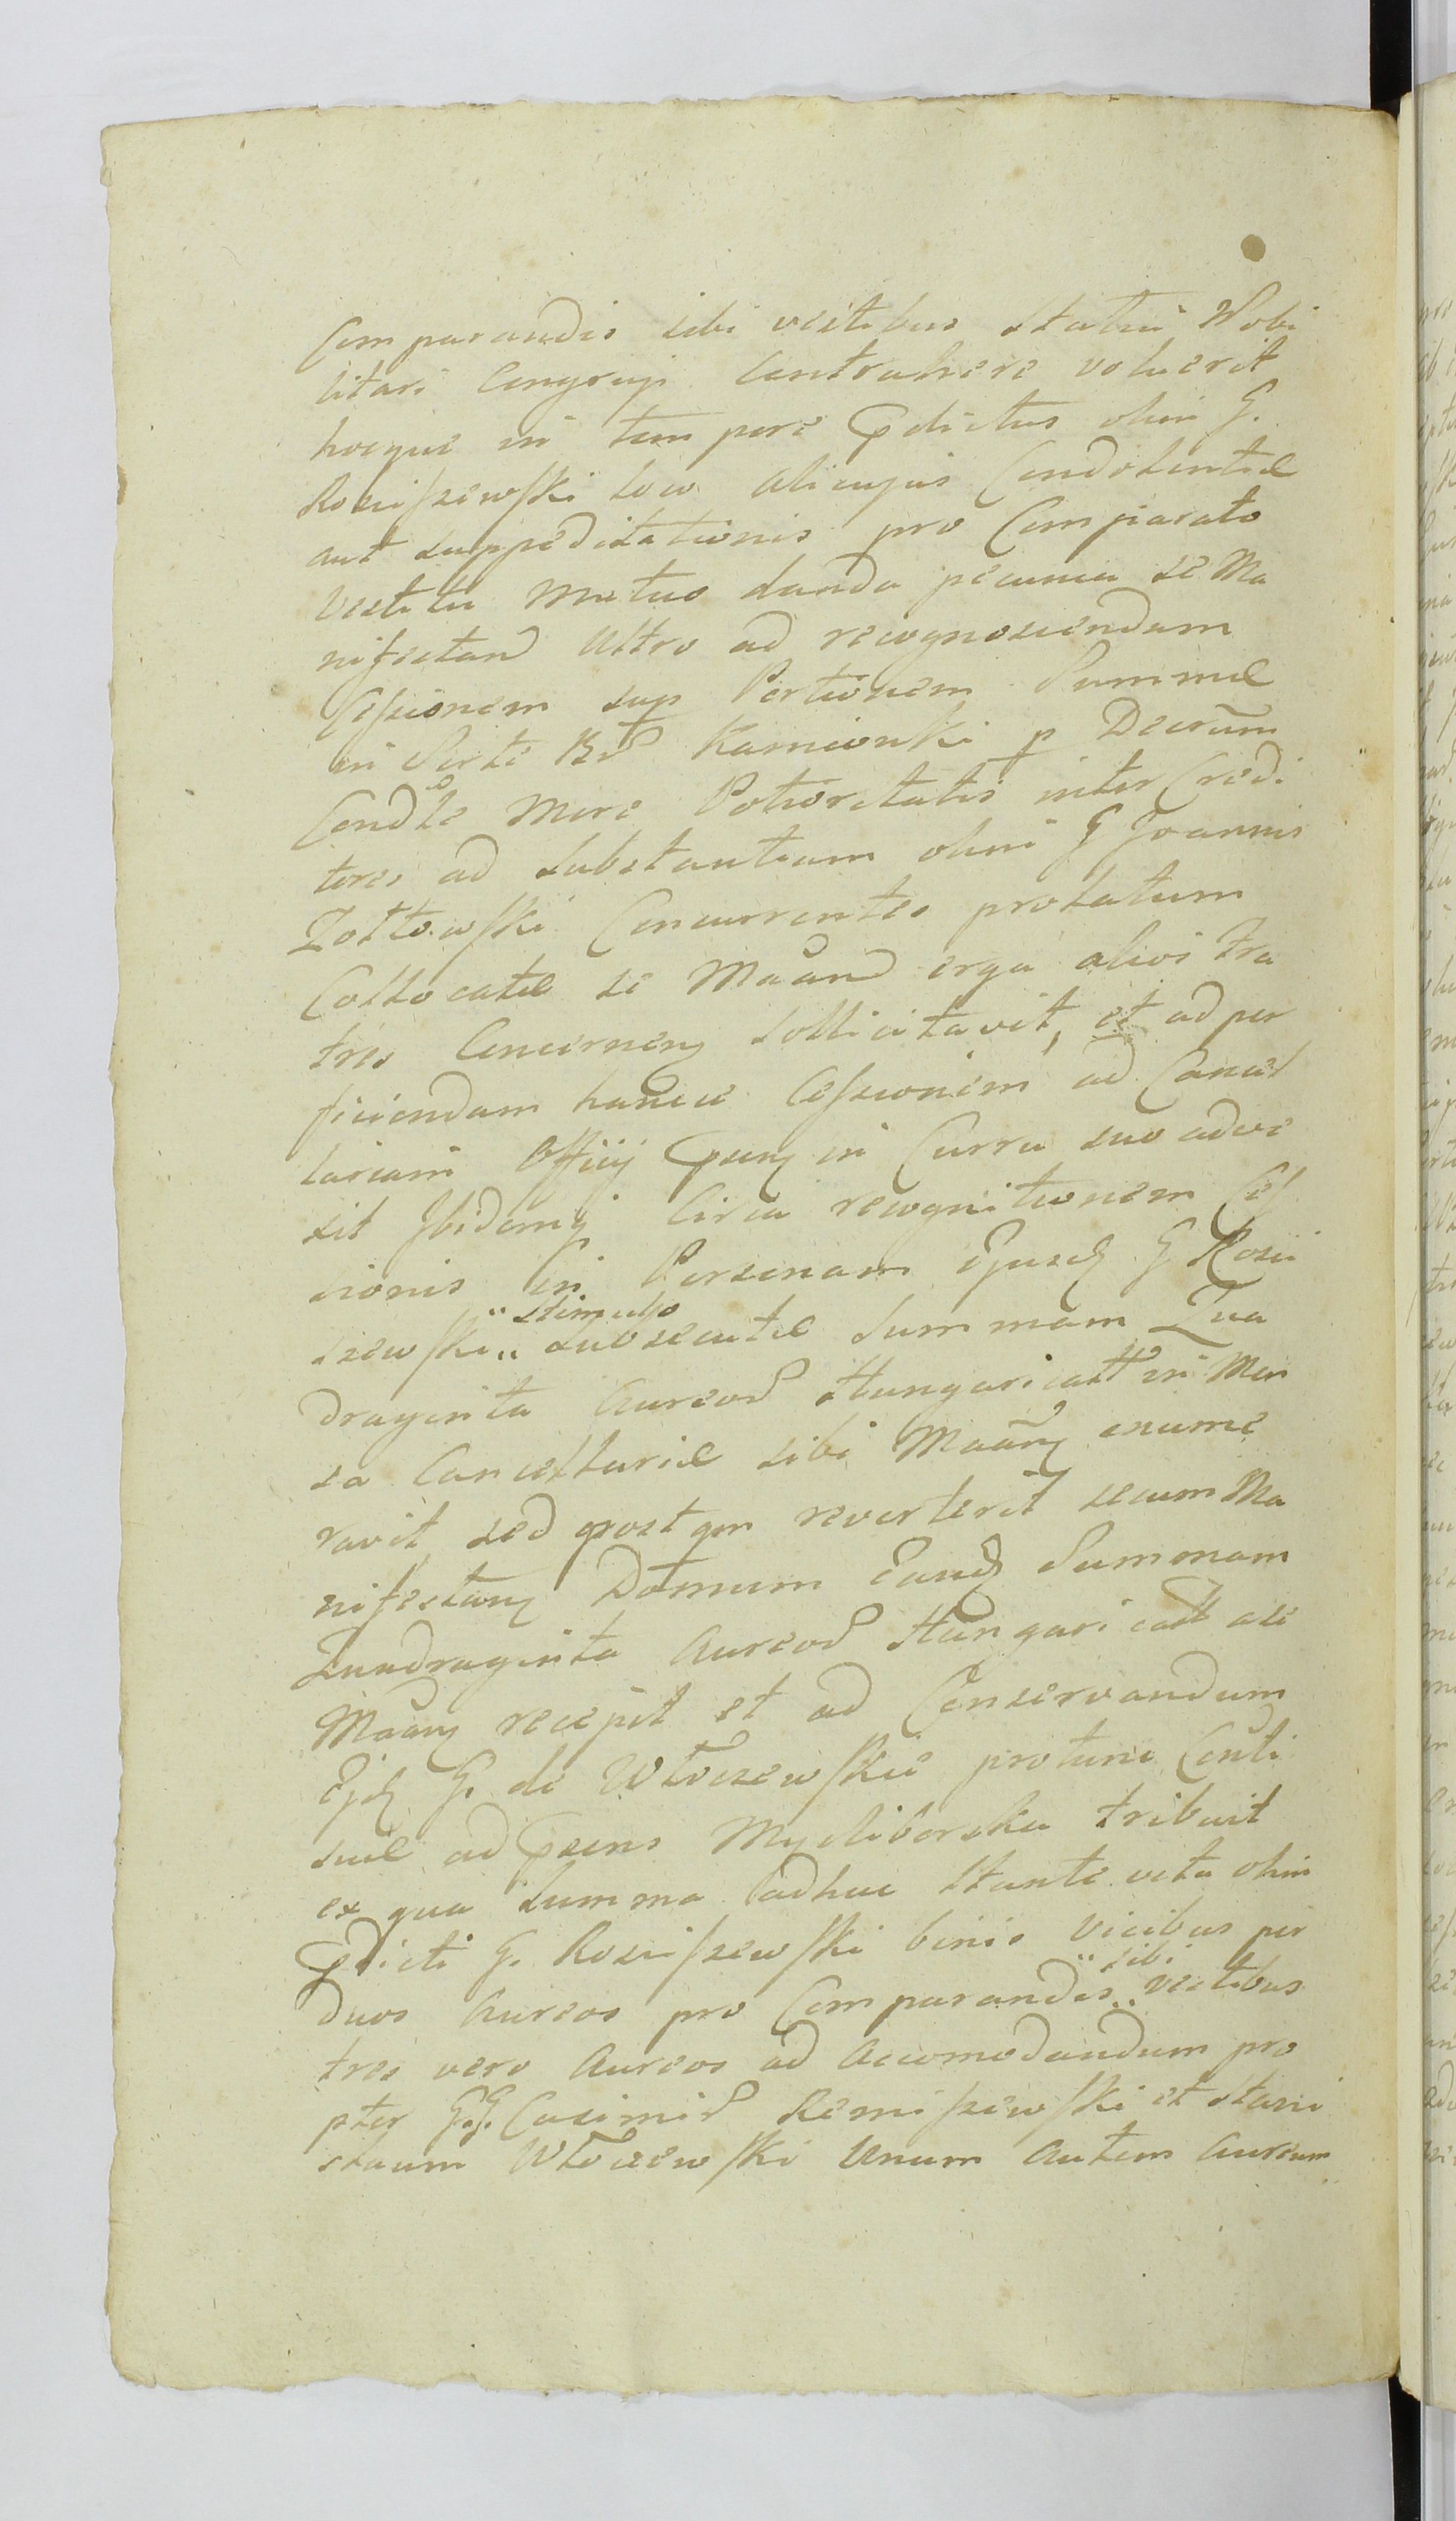 Comparandis sibi vestibus Statui Nobi
litari Congruis Contrahere voluerit
hocque in tempore Pdictus olim G.
Rosciszewski loco alicujus Condolentiæ
aut suppeditationis pro Comparato
Vestitu mutuo danda pecunia se Ma
nifestand Ultro ad recognoscendam
Cessionem sup Portionem Summæ
in Sorte Bd Kamionki p Decrūm
Condle mere Potioritatis inter Credi
tores ad Substantiam olim G Joannis
Zołtowski Concurrentes prolatum
Collocatæ se Maand erga alios fra
tres Concernen sollicitavit, et ad per
ficiendam hancce Cessionem ad Cancel
lariam Officij Psens in Curru suo adve
xit Ibidemq Circa recognitionem Ces
sionis in Personam Ejusd G Rosci
szewski „ stimulo „ subsecutæ Summam Qua
draginta Aureod Hungaricall in Men
sa Cancellariæ sibi Maan enume
ravit, sed postqm reverterit secum Ma
nifestan Domum Eand Summam
Quadraginta Aureod Hungaricall a se
Maan recepit et ad Conservandum
Ejd G. de Włoczewskie protunc Conti
suæ ad Psens Mysliborska tribuit
ex qua Summa adhuc stante vita olim
Pdicti G. Rosciszewski binis Vicibus per
duos Aureos pro Comparandis „ sibi „ Vestibus
tres vero Aureos ad Accomodandum pro
pter G.G. Casimid Remiszewski et Stani
slaum Włoczewski Unum autem Aureum